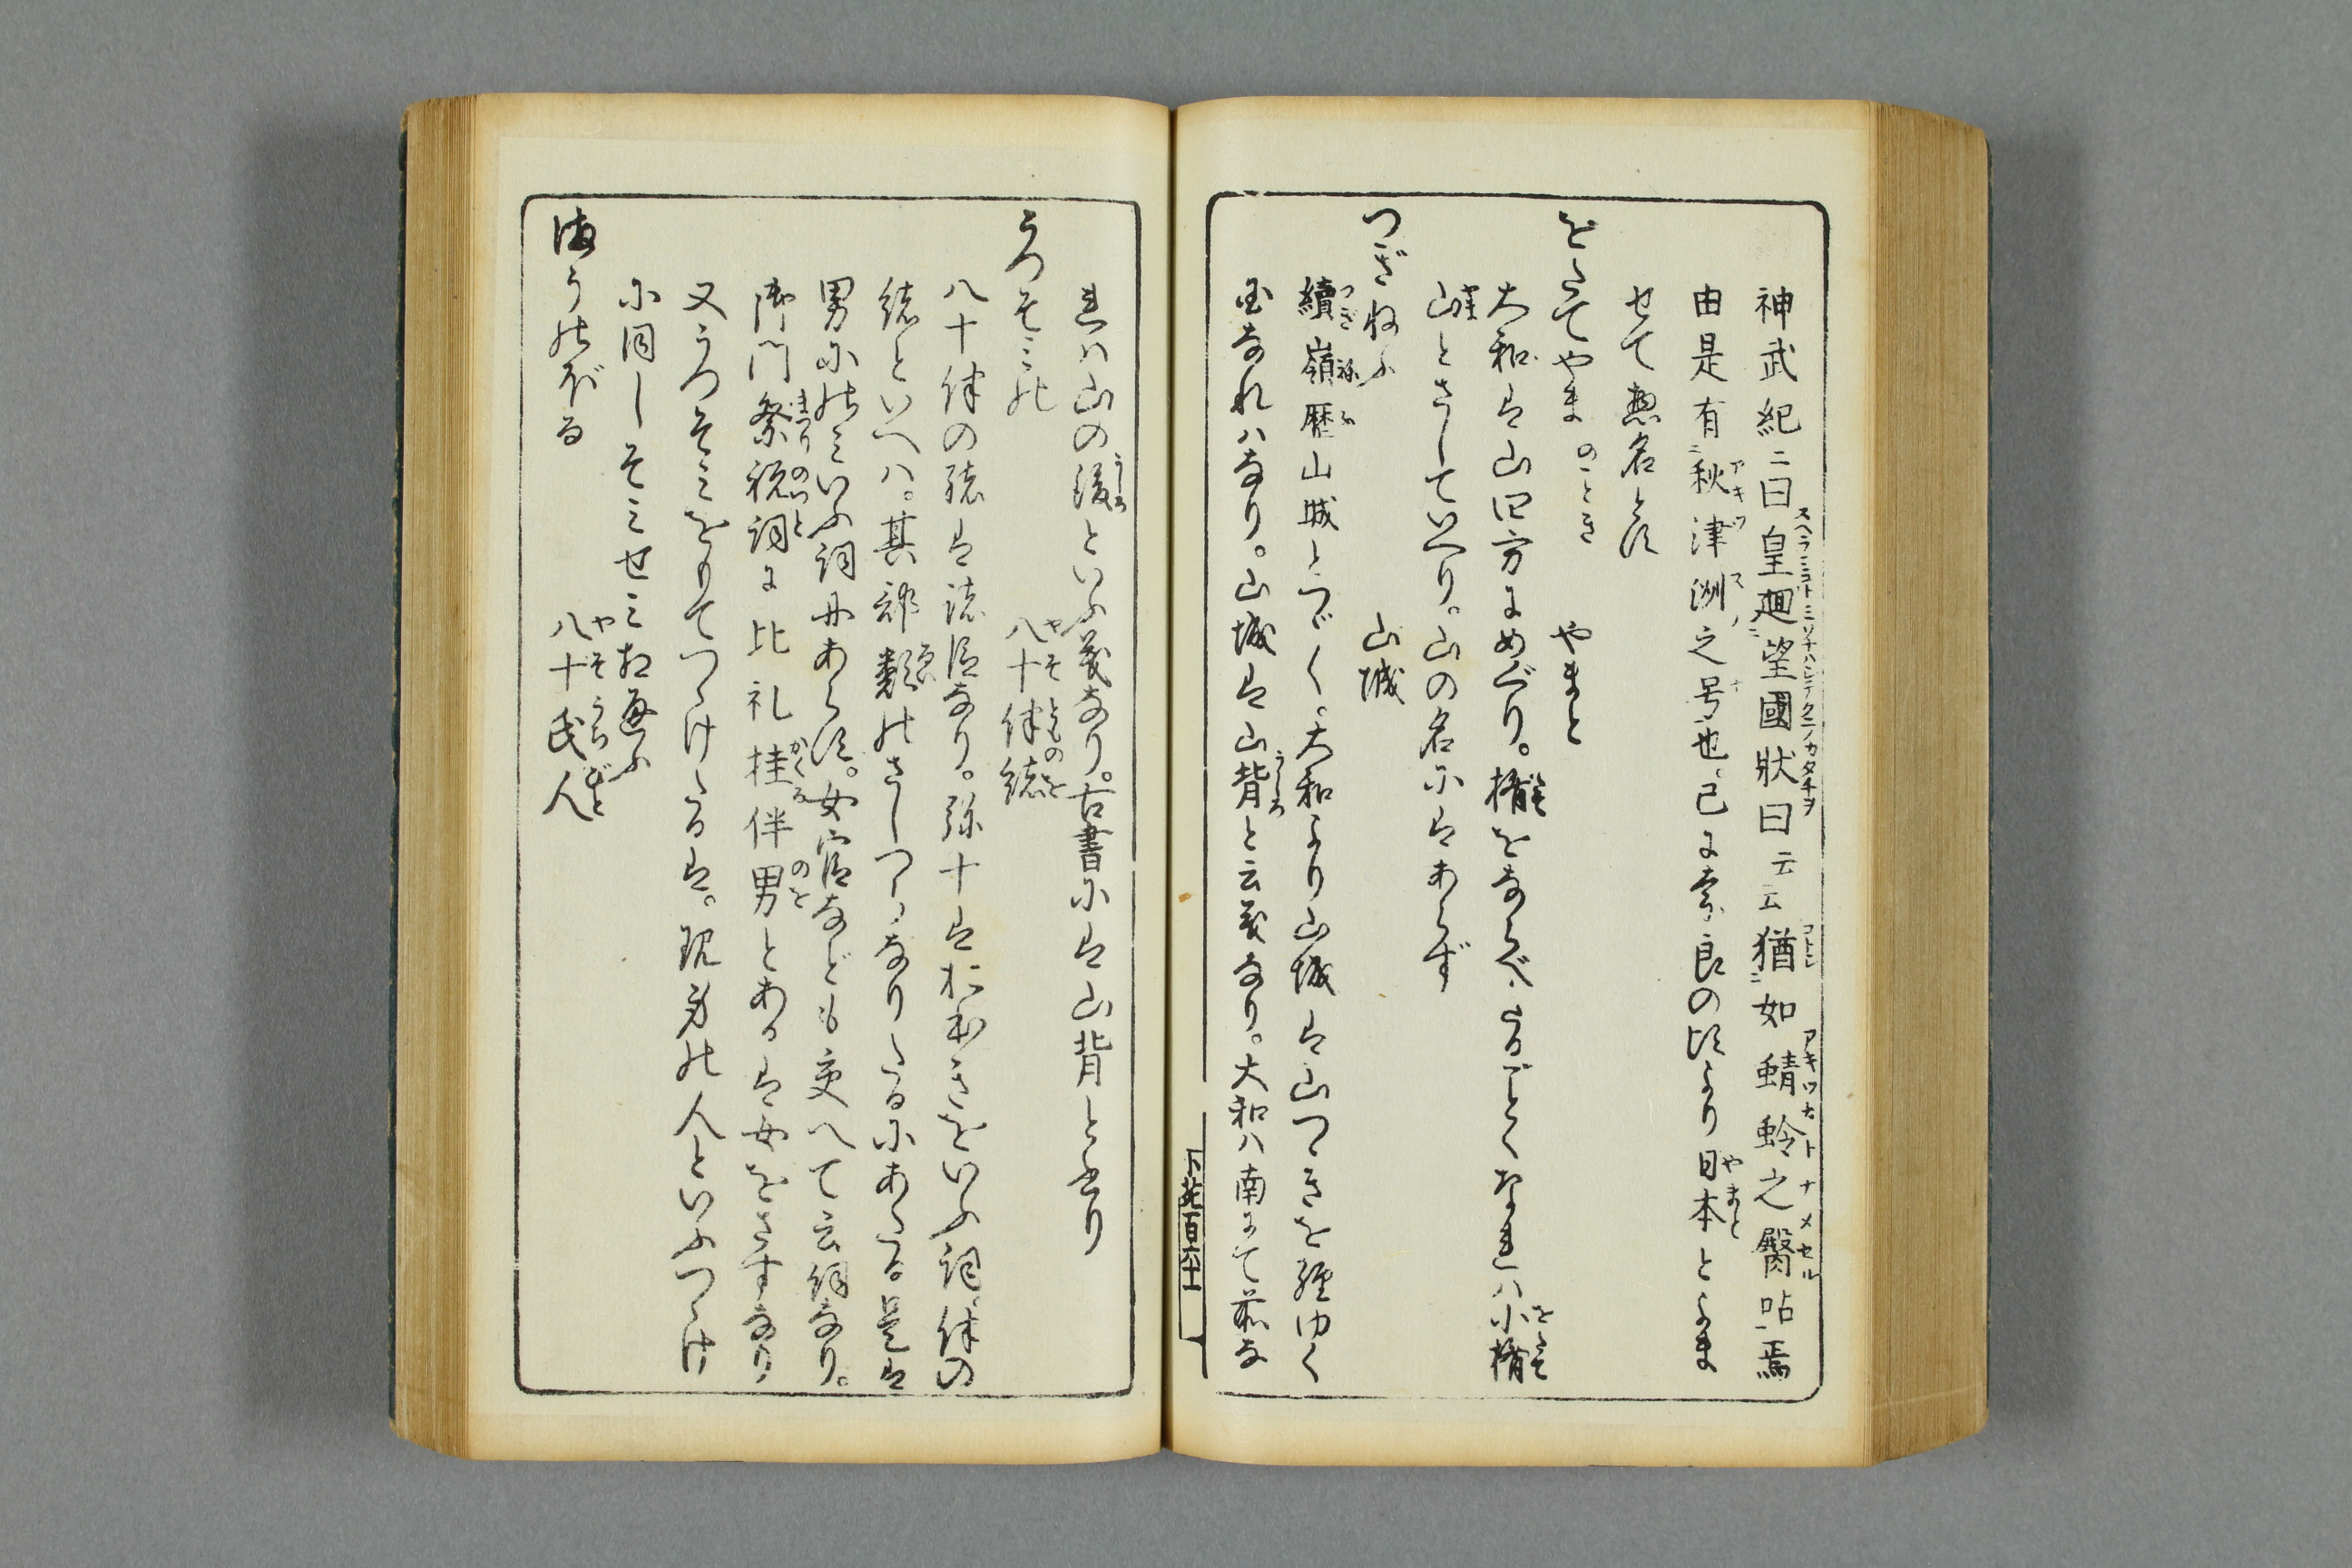 神武紀ニ曰皇廻望國狀曰云云猶如蜻蛉之臀呫焉
由是有秋津洲之号也。已に奈良の比より日本とよま
せて惣名とす
をたてやま のことき やまと
大和は山四方にめぐり。楯をならべたるごとくなれハ小楯
山とさしていへり。山の名にはあらず
つぎねふ 山城
續嶺歴山城とつゞく。大和より山城は山つゞきを經ゆく
国なれハなり。山城は山背と云義なり。大和ハ南にて前な
下 百六十二
れハ山の後といふ義なり。古書には山背と書り
うつそみの 八十伴緒
八十伴の緒は諸臣なり。弥十はおほきをいふ詞。伴の
緒といへハ。其部類のさしつらなりたるにあたる是は
男にのミいふ詞にあらず。女官なども交へて云詞なり。
御門祭祝詞に比礼挂伴男とあるは女をさすなり
又うつそミをりてつゞけたるは。現身の人といふつゞけ
に同しそミせミ相通ふ
海うのぼる 八十氏人